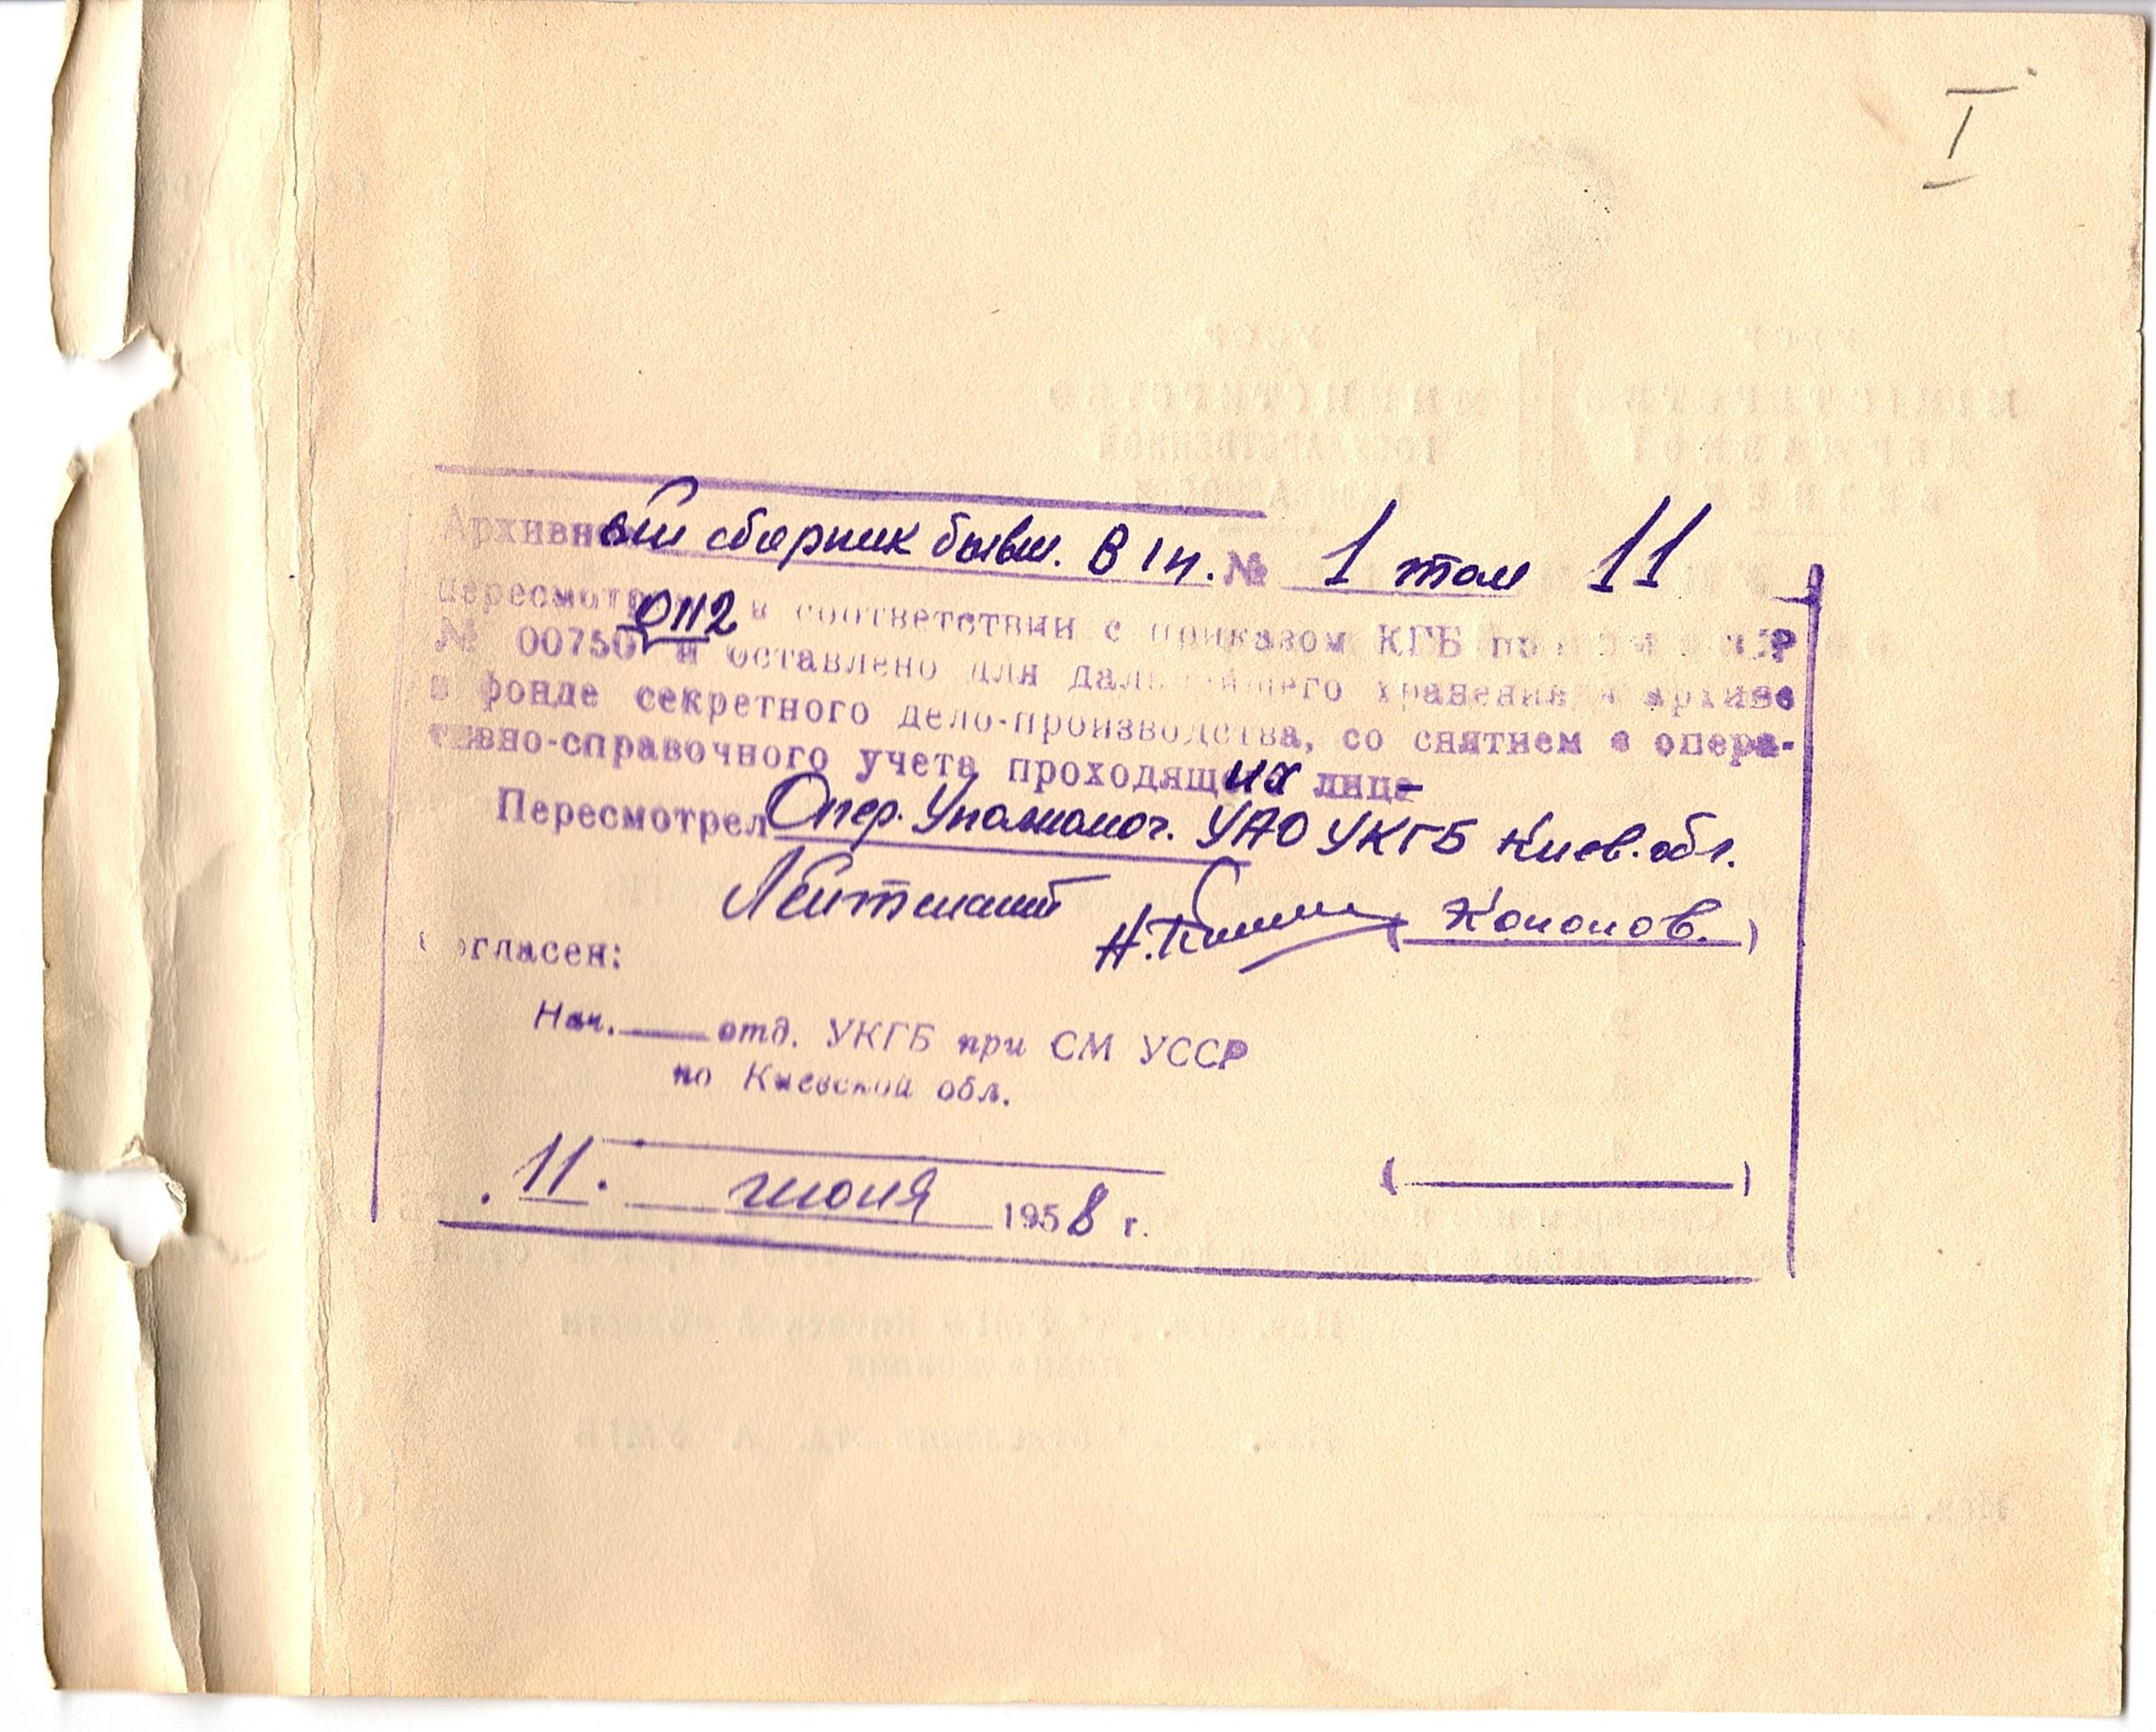 I
Архивный сборник бывш. В 1 н. № 1 том 11
пересмотр в соответствии с приказом КГБ при СМ
№ 00750 0112 и оставлено для дальнейшего хранения в архиве
в фонде секретного дело-производства, со снятием с опера-
тивно-справочного учета проходящих лиц
Пересмотрел Опер. Уполномоч. УАО УКГБ Киев. обл.
Лейтенант (Кононов.)
Согласен:
Нач. ____ отд. УКГБ при СМ УССР
по Киевской обл.
(________)
„11“ июня 1958 г.